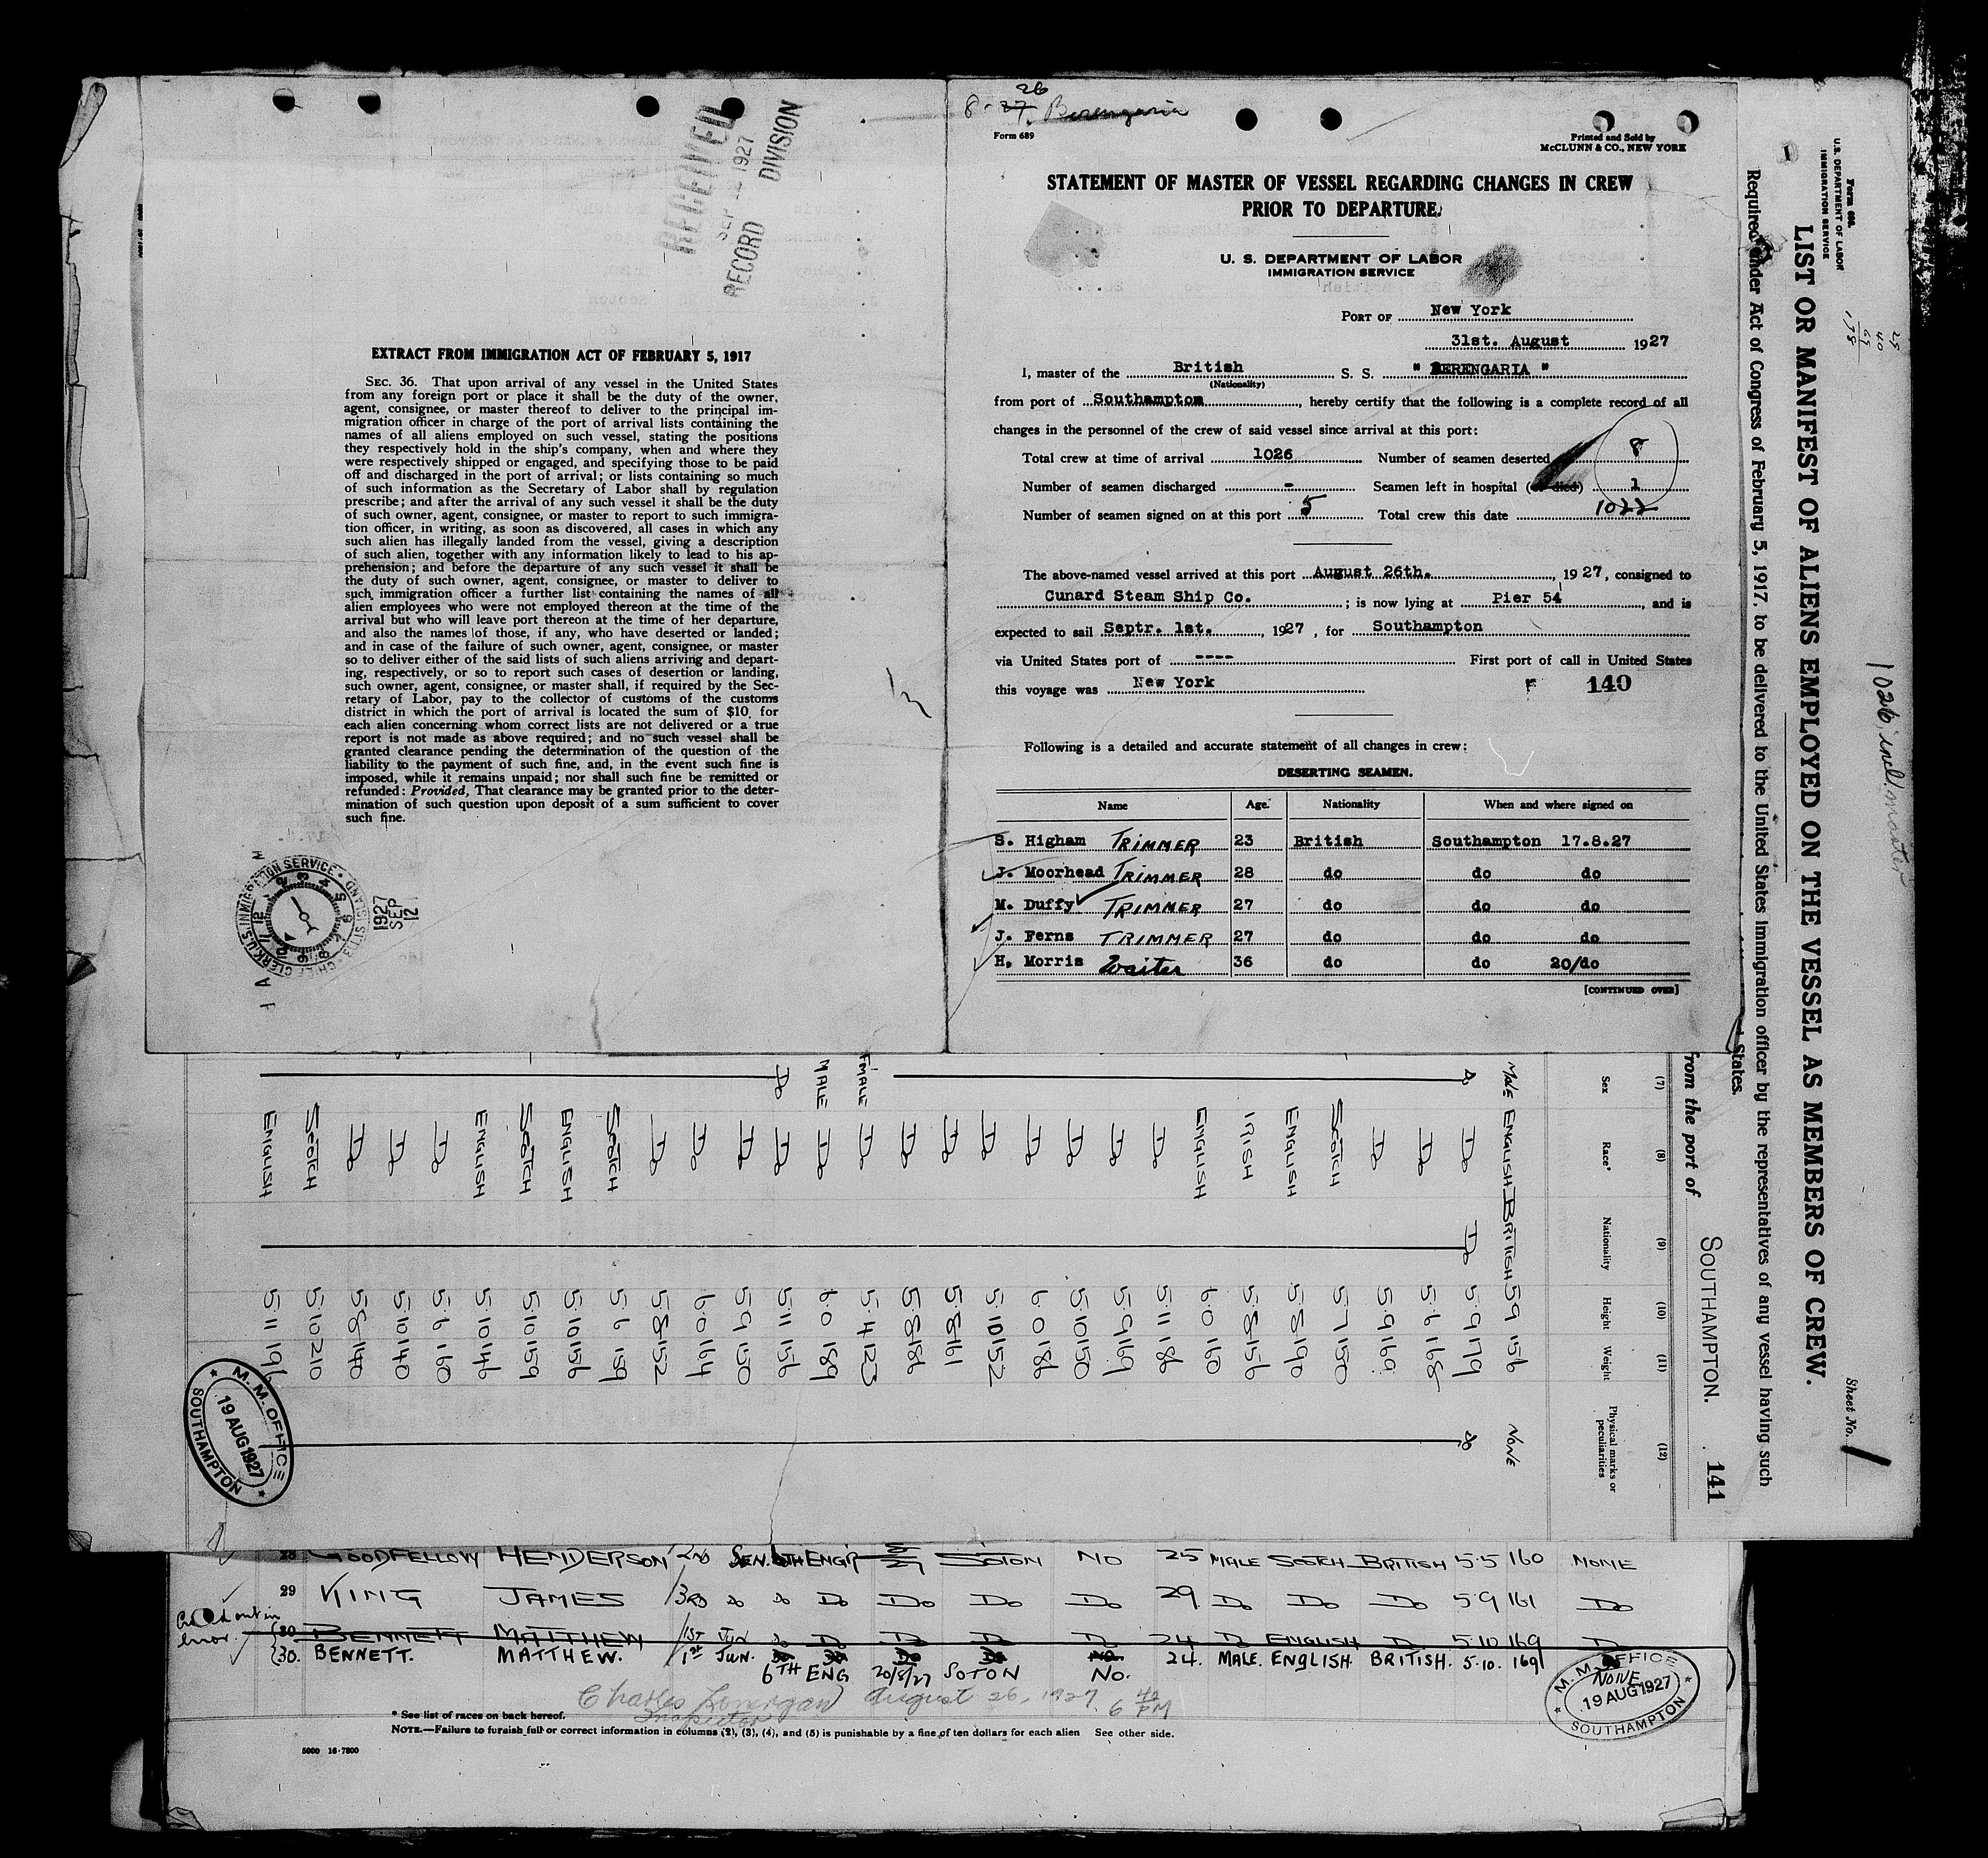 RECEIVED
SEP 12 1927
RECORD DIVISION
EXTRACT FROM IMMIGRATION ACT OF FEBRUARY 5, 1917
SEC. 36. That upon arrival of any vessel in the United States
from any foreign port or place it shall be the duty of the owner,
agent, consignee, or master thereof to deliver to the principal im-
migration officer in charge of the port of arrival lists containing the
names of all aliens employed on such vessel, stating the positions
they respectively hold in the ship's company, when and where they
were respectively shipped or engaged, and specifying those to be paid
off and discharged in the port of arrival; or lists containing so much
of such information as the Secretary of Labor shall by regulation
prescribe; and after the arrival of any such vessel it shall be the duty
of such owner, agent, consignee, or master to report to such immigra-
tion officer, in writing, as soon as discovered, all cases in which any
such alien has illegally landed from the vessel, giving a description
of such alien, together with any information likely to lead to his ap-
prehension; and before the departure of any such vessel it shall be
the duty of such owner, agent, consignee, or master to deliver to
such immigration officer a further list containing the names of all
alien employees who were not employed thereon at the time of the
arrival but who will leave port thereon at the time of her departure,
and also the names of those, if any, who have deserted or landed;
and in case of the failure of such owner, agent, consignee, or master
so to deliver either of the said lists of such aliens arriving and depart-
ing, respectively, or so to report such cases of desertion or landing,
such owner, agent, consignee, or master shall, if required by the Sec-
retary of Labor, pay to the collector of customs of the customs
district in which the port of arrival is located the sum of $10 for
each alien concerning whom correct lists are not delivered or a true
report is not made as above required; and no such vessel shall be
granted clearance pending the determination of the question of the
liability to the payment of such fine, and, in the event such fine is
imposed, while it remains unpaid; nor shall such fine be remitted or
refunded: Provided, That clearance may be granted prior to the deter-
mination of such question upon deposit of a sum sufficient to cover
such fine.
1927
SEP
12
26
8-27. Berengaria
Form 689
Printed and Sold by
McCLUNN & CO., NEW YORK
STATEMENT OF MASTER OF VESSEL REGARDING CHANGES IN CREW
PRIOR TO DEPARTURE.
U. S. DEPARTMENT OF LABOR
IMMIGRATION SERVICE
PORT OF New York
31st. August 1927
I, master of the British S. S. " BERENGARIA "
(Nationality)
from port of Southampton, hereby certify that the following is a complete record of all
changes in the personnel of the crew of said vessel since arrival at this port:
Total crew at time of arrival 1026 Number of seamen deserted 8
Number of seamen discharged - Seamen left in hospital (or died) 1
Number of seamen signed on at this port 5 Total crew this date 1022
The above-named vessel arrived at this port August 26th. , 1927, consigned to
Cunard Steam Ship Co. ; is now lying at Pier 54 , and is
expected to sail Septr. 1st. , 1927 , for Southampton
via United States port of ---- First port of call in United States
this voyage was New York 140
Following is a detailed and accurate statement of all changes in crew:
DESERTING SEAMEN.
Name Age. Nationality When and where signed on
S. Higham TRIMMER 23 British Southampton 17.8.27
J. Moorhead TRIMMER 28 do do do
M. Duffy TRIMMER 27 do do do
J. Ferns TRIMMER 27 do do do
H, Morris Waiter 36 do do 20/do
[CONTINUED OVER]
Form 680
U.S. DEPARTMENT OF LABOR
IMMIGRATION SERVICE
1026, incl. master
Sheet No. 1
LIST OR MANIFEST OF ALIENS EMPLOYED ON THE VESSEL AS MEMBERS OF CREW.
Required under Act of Congress of February 5, 1917, to be delivered to the United States immigration officer by the representatives of any vessel having such
States.
from the port of SOUTHAMPTON. 141
(7) (8) (9) (10) (11) (12)
Sex Race* Nationality Height Weight Physical marks or peculiarities
MALE ENGLISH BRITISH 5 9 156 NONE
Do Do Do 5·9 179 Do
Do 5·6 168
Do 5·9 169
SCOTCH 5·7 150
ENGLISH 5·8 190
IRISH 5·8 156
ENGLISH 6·0 160
Do 5·11 186
Do 5·9 169
Do 5·10 150
Do 6·0 186
Do 5·10 152
Do 5·8 161
Do 5·8 186
FMALE Do 5·4 123
MALE Do 6·0 189
Do Do 5·11 156
Do 5·9 150
Do 6·0 164
Do 5·8 152
SCOTCH 5·6 159
ENGLISH 5·10 156
SCOTCH 5·10 159
ENGLISH 5·10 146
Do 5·6 160
Do 5·10 140
Do 5·8 140
SCOTCH 5·10 210
ENGLISH 5·11 196
M. M. OFFICE
19 AUG 1927
SOUTHAMPTON
28 GOODFELLOW HENDERSON 2ND SEN. 6TH ENGR 27 SOTON NO 25 MALE SCOTCH BRITISH 5·5 160 NONE
29 KING JAMES 3RD Do Do Do Do Do Do 29 Do Do Do 5·9 161 Do
30 BENNETT MATTHEW 1ST JUN Do Do Do Do Do 24 Do ENGLISH Do 5·10 169 Do
30. BENNETT. MATTHEW. 1st JUN. 24. MALE. ENGLISH. BRITISH. 5·10. 169
6TH ENG 20/8/27 SOTON NO. NONE
Charles Lonergan August 26, 1927 6 40 PM
Inspector
M. M. OFFICE
19 AUG 1927
SOUTHAMPTON
* See list of races on back hereof.
NOTE.—Failure to furnish full or correct information in columns (2), (3), (4), and (5) is punishable by a fine of ten dollars for each alien See other side.
5000 16-7800